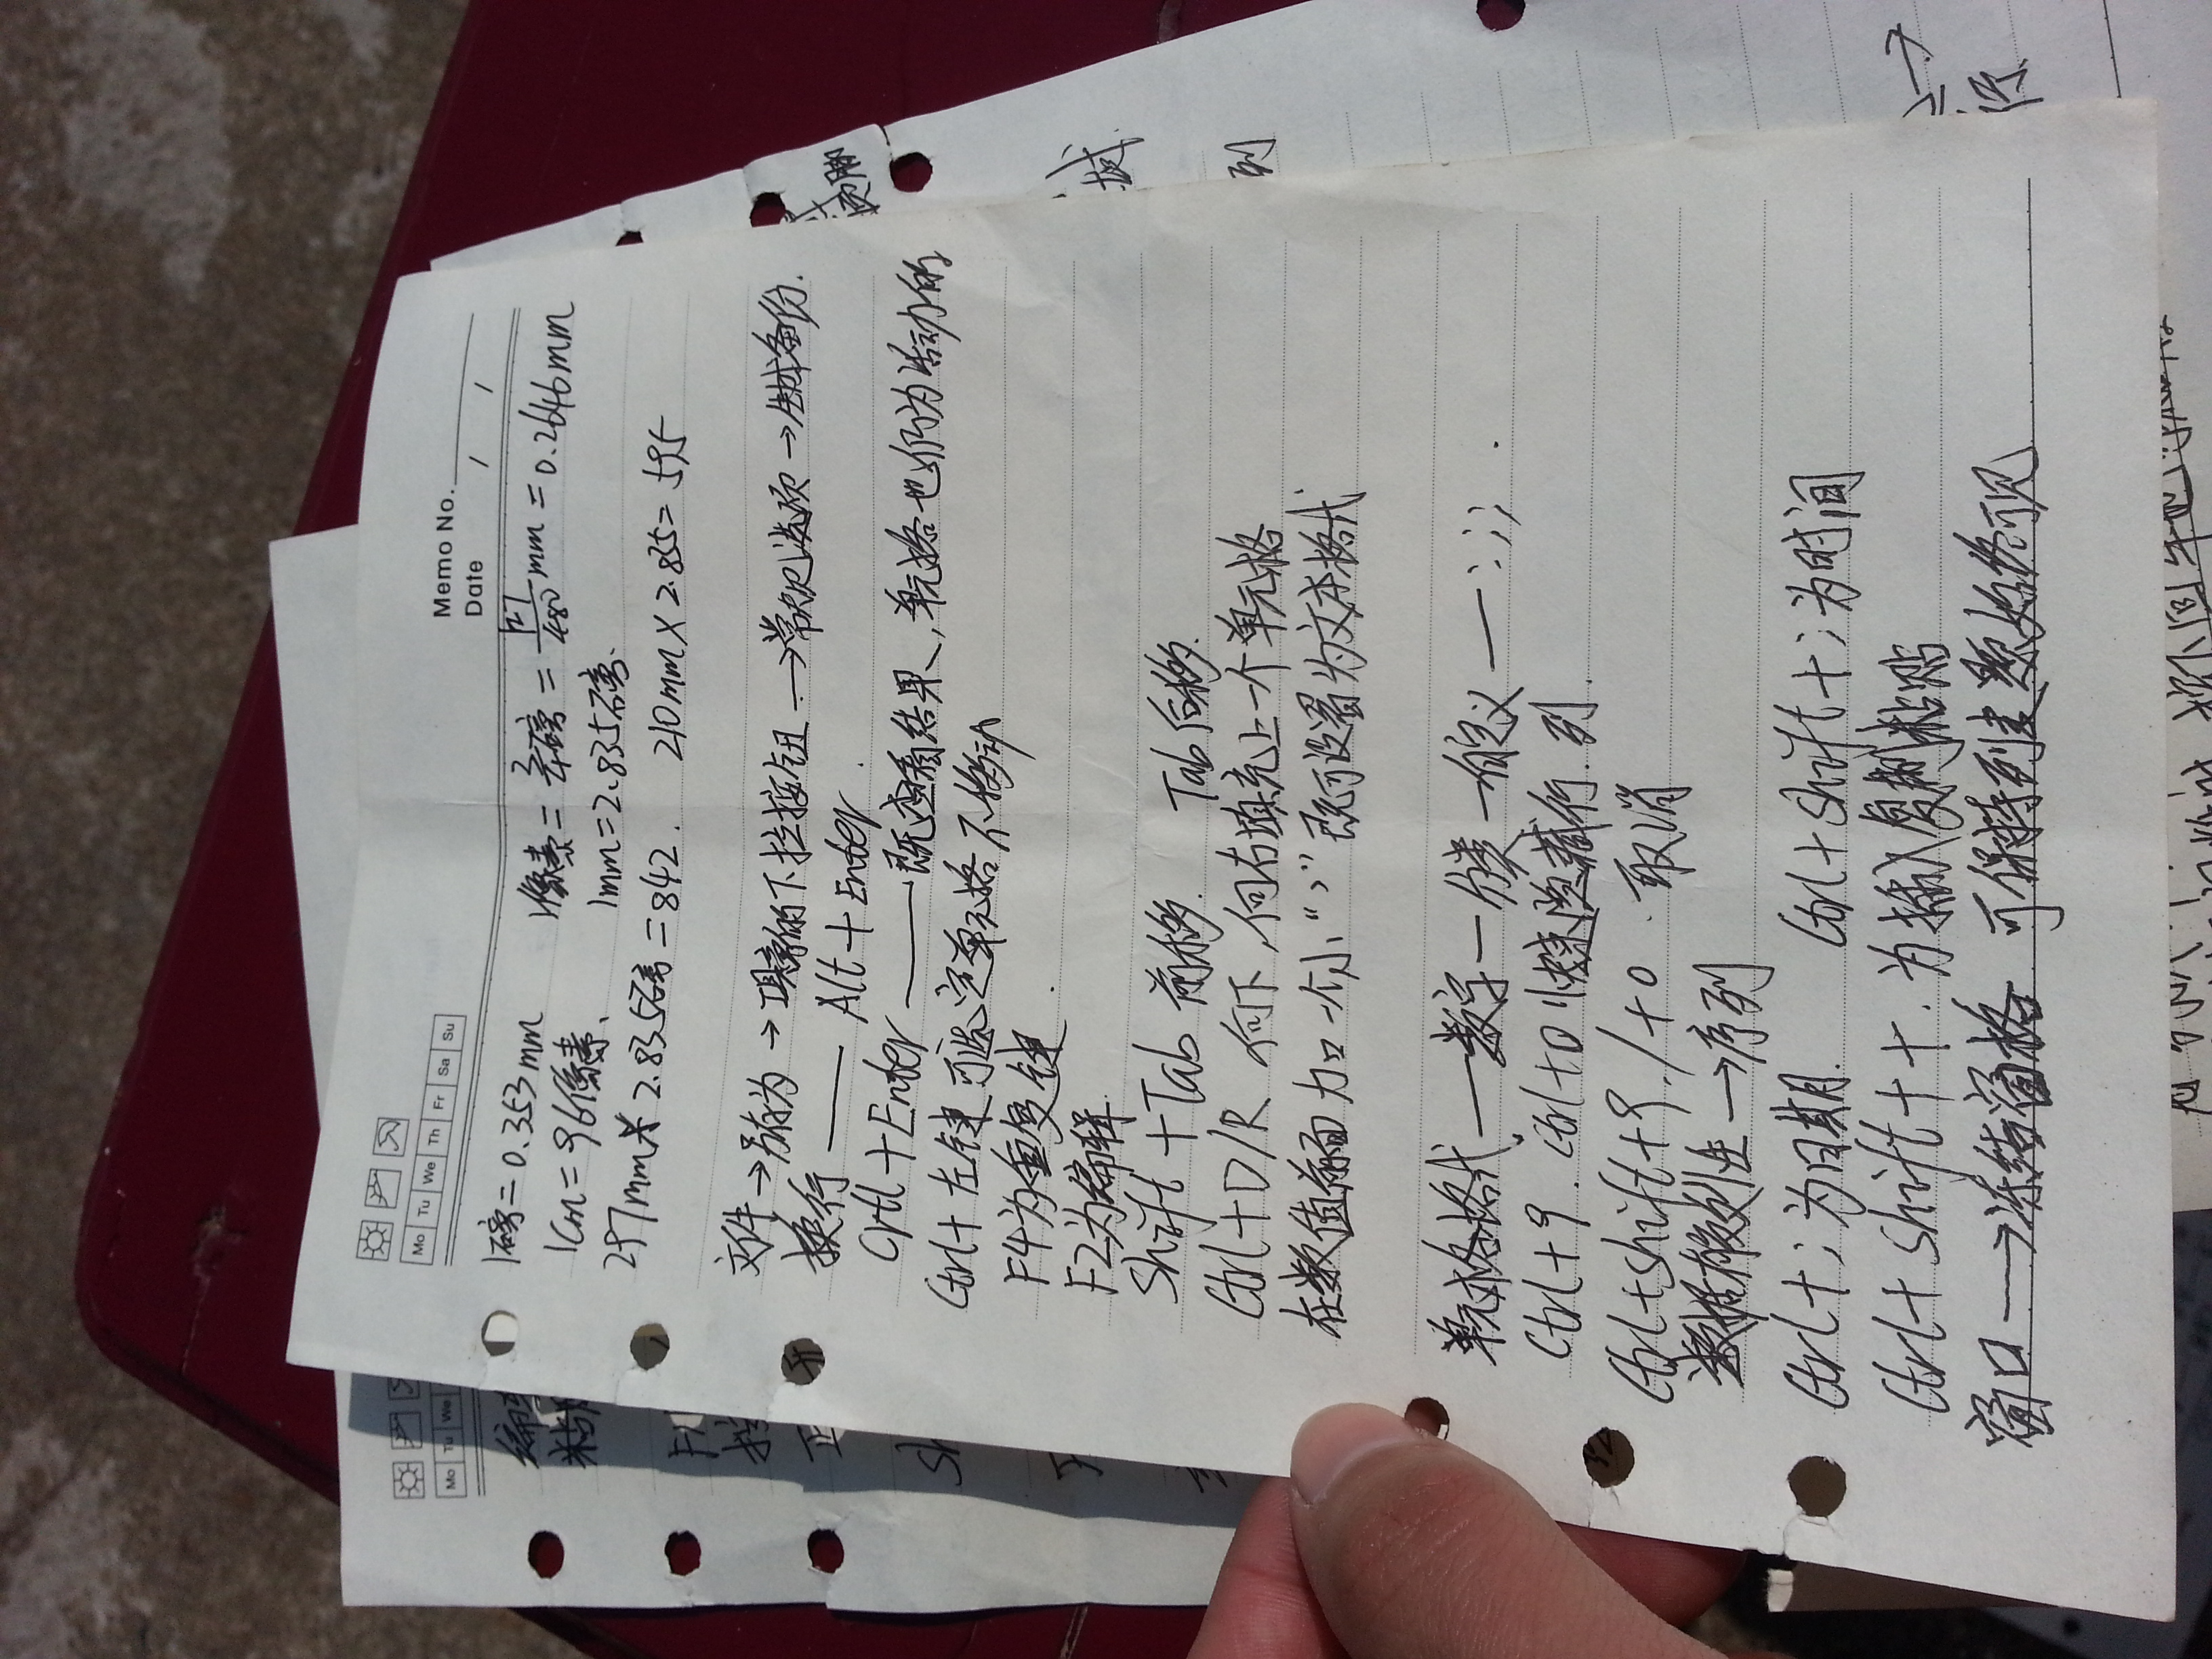 Mo Tu We Th Fr Sa Su
Memo No.
Date / /
1磅=0.353mm 1像素=3/4磅=127/480mm=0.2646mm
1cm=96像素、 1mm=2.835磅.
297mm×2.835磅=842. 210mm×2.835=595
文件→另存为→工具旁的下拉按钮→常规选项→生成备份.
换行——Alt+Enter.
Crtl+Enter——既查看结果,单元格也仍为活动的
Ctrl+左键可选定单元格不移动
F4为重复键.
F2为编辑.
Shift+Tab前移. Tab后移.
Ctrl+D/R 向下,向右填充上一个单元格
在数值前面加一个小“,”既可设置为文本格式
单元格格式—数字—分类—自定义—:;;.
Ctrl+9.Ctrl+0快速隐藏行.列.
Ctrl+shift+9./+0.取消
数据有效性→序列
Ctrl+;为日期. Ctrl+shift+;为时间
Ctrl+shift++.为插入复制粘贴
窗口→冻结窗格 可保持列标题始终可见
Mo Tu We
页脚
域.
列
行